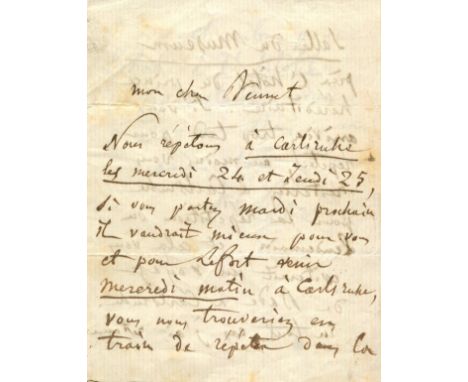 mon cher Vernet
Nous répétons à Carlsruhe
les mercredi 24 et Jeudi 25,
si vous partez mardi prochain
il vaudrait mieux pour vous
et pour Lefort venir
mercredi matin à Carlsruhe,
vous nous trouveriez en
train de répéter dans la